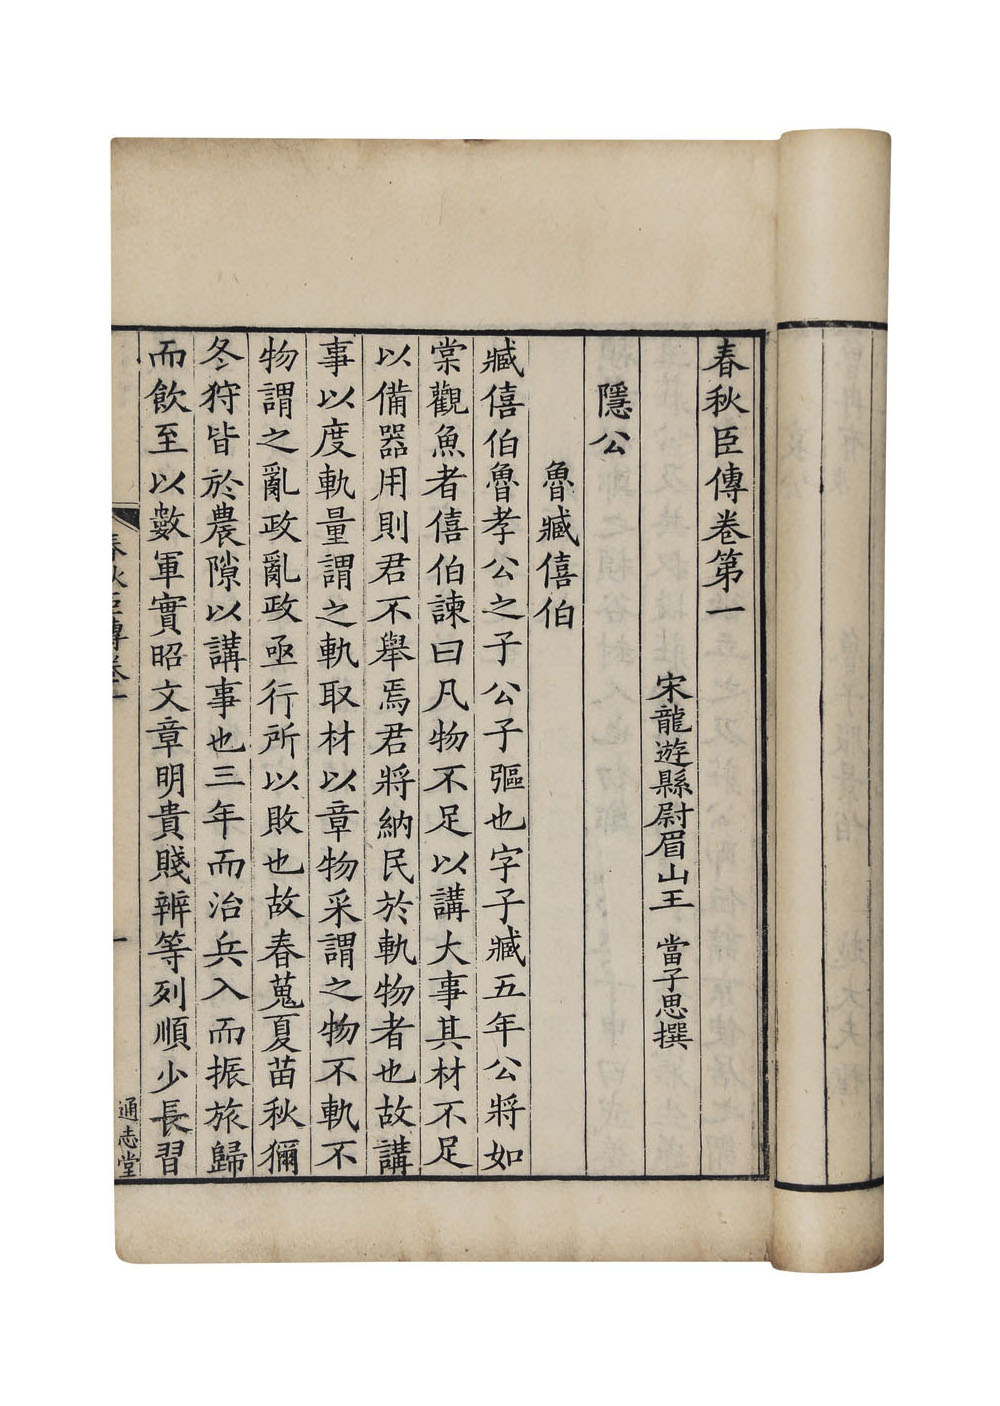 春秋臣傳卷第一
宋龍遊縣尉眉山王 當子思撰
隱公
魯臧僖伯
臧僖伯魯孝公之子公子彄也字子臧五年公將如
棠觀魚者僖伯諫曰凡物不足以講大事其材不足
以備器用則君不舉焉君將納民於軌物者也故講
事以度軌量謂之軌取材以章物采謂之物不軌不
物謂之亂政亂政亟行所以敗也故春蒐夏苗秋獮
冬狩皆於農隙以講事也三年而治兵入而振旅歸
而飲至以數軍實昭文章明貴賤辨等列順少長習
春秋臣傳卷一
一
通志堂